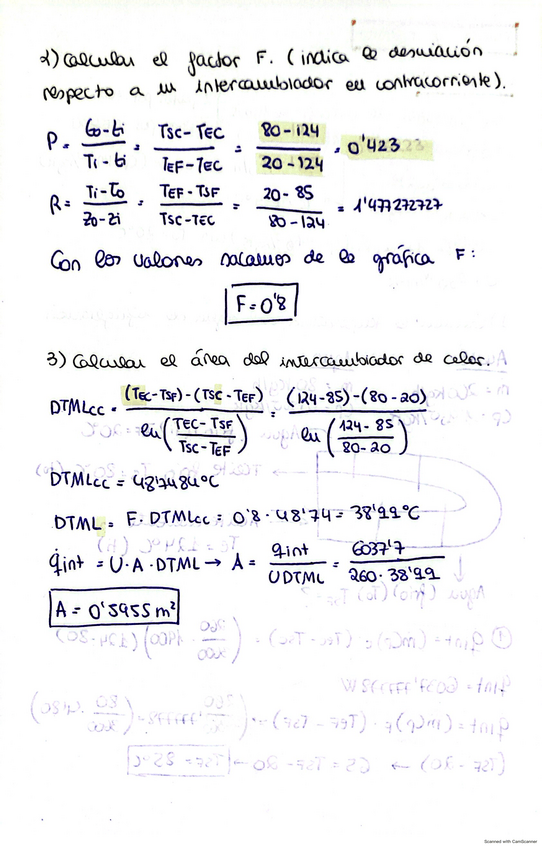 2) Calcular el factor F. (indica la desviación
respecto a un intercambiador en contracorriente).
P = (to-ti)/(Ti-ti) = (TSC-TEC)/(TEF-TEC) = (80-124)/(20-124) = 0'423
R = (Ti-To)/(to-ti) = (TEF-TSF)/(TSC-TEC) = (20-85)/(80-124) = 1'477272727
Con los valores sacamos de la gráfica F:
F=0'8
3) Calcular el área del intercambiador de calor.
DTMLcc = ((TEC-TSF)-(TSC-TEF))/(ln((TEC-TSF)/(TSC-TEF))) = ((124-85)-(80-20))/(ln((124-85)/(80-20)))
DTMLcc = 48'7484°C
DTML = F·DTMLcc = 0'8·48'74 = 38'99°C
q̇int = U·A·DTML → A = qint/(UDTML) = 6037'7/(260·38'99)
A = 0'5955 m²
Scanned with CamScanner